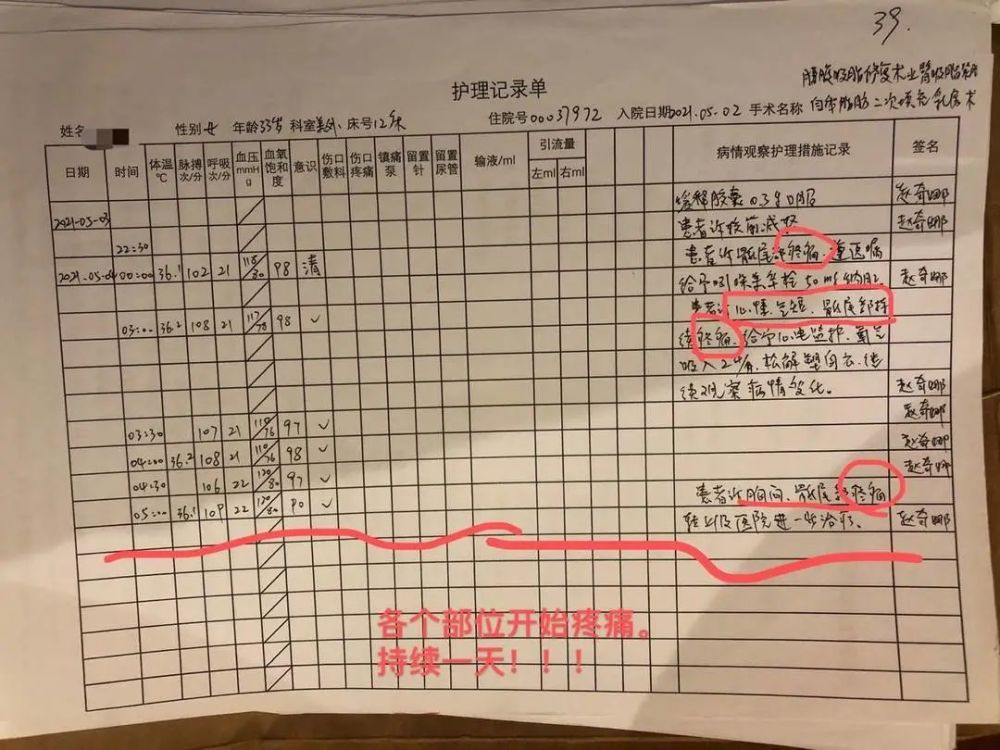 39.
腰腹吸脂修复术 上臂吸脂术
护理记录单
姓名 性别 女 年龄 33岁 科室 美外 床号 12床 住院号 00037972 入院日期 2021.05.02 手术名称 自体脂肪二次填充乳房术
日期 时间 体温℃ 脉搏次/分 呼吸次/分 血压mmHg 血氧饱和度 意识 伤口敷料 伤口疼痛 镇痛泵 留置针 留置尿管 输液/ml 引流量 左ml 右ml 病情观察护理措施记录 签名
缓释胶囊0.3g口服 赵奇娜
2021-05-03 22:30 患者诉较前减轻 赵奇娜
2021.05.04 00:00 36.1 102 21 118/80 98 清 患者诉骶尾部疼痛,遵医嘱
给予吲哚美辛栓50mg纳肛。 赵奇娜
03:00 36.2 108 21 117/78 98 ✓ 患者诉心慌、气短、骶尾部持
续疼痛,给予心电监护,氧气
吸入2L/分,松解塑身衣,继
续观察病情变化。 赵奇娜
赵奇娜
03:30 107 21 110/76 97 ✓
04:00 36.2 108 21 110/76 98 ✓ 赵奇娜
04:30 106 22 120/80 97 ✓ 赵奇娜
05:00 36.1 109 22 120/80 90 ✓ 患者诉胸闷、骶尾部疼痛
转上级医院进一步治疗。 赵奇娜
各个部位开始疼痛。
持续一天！！！